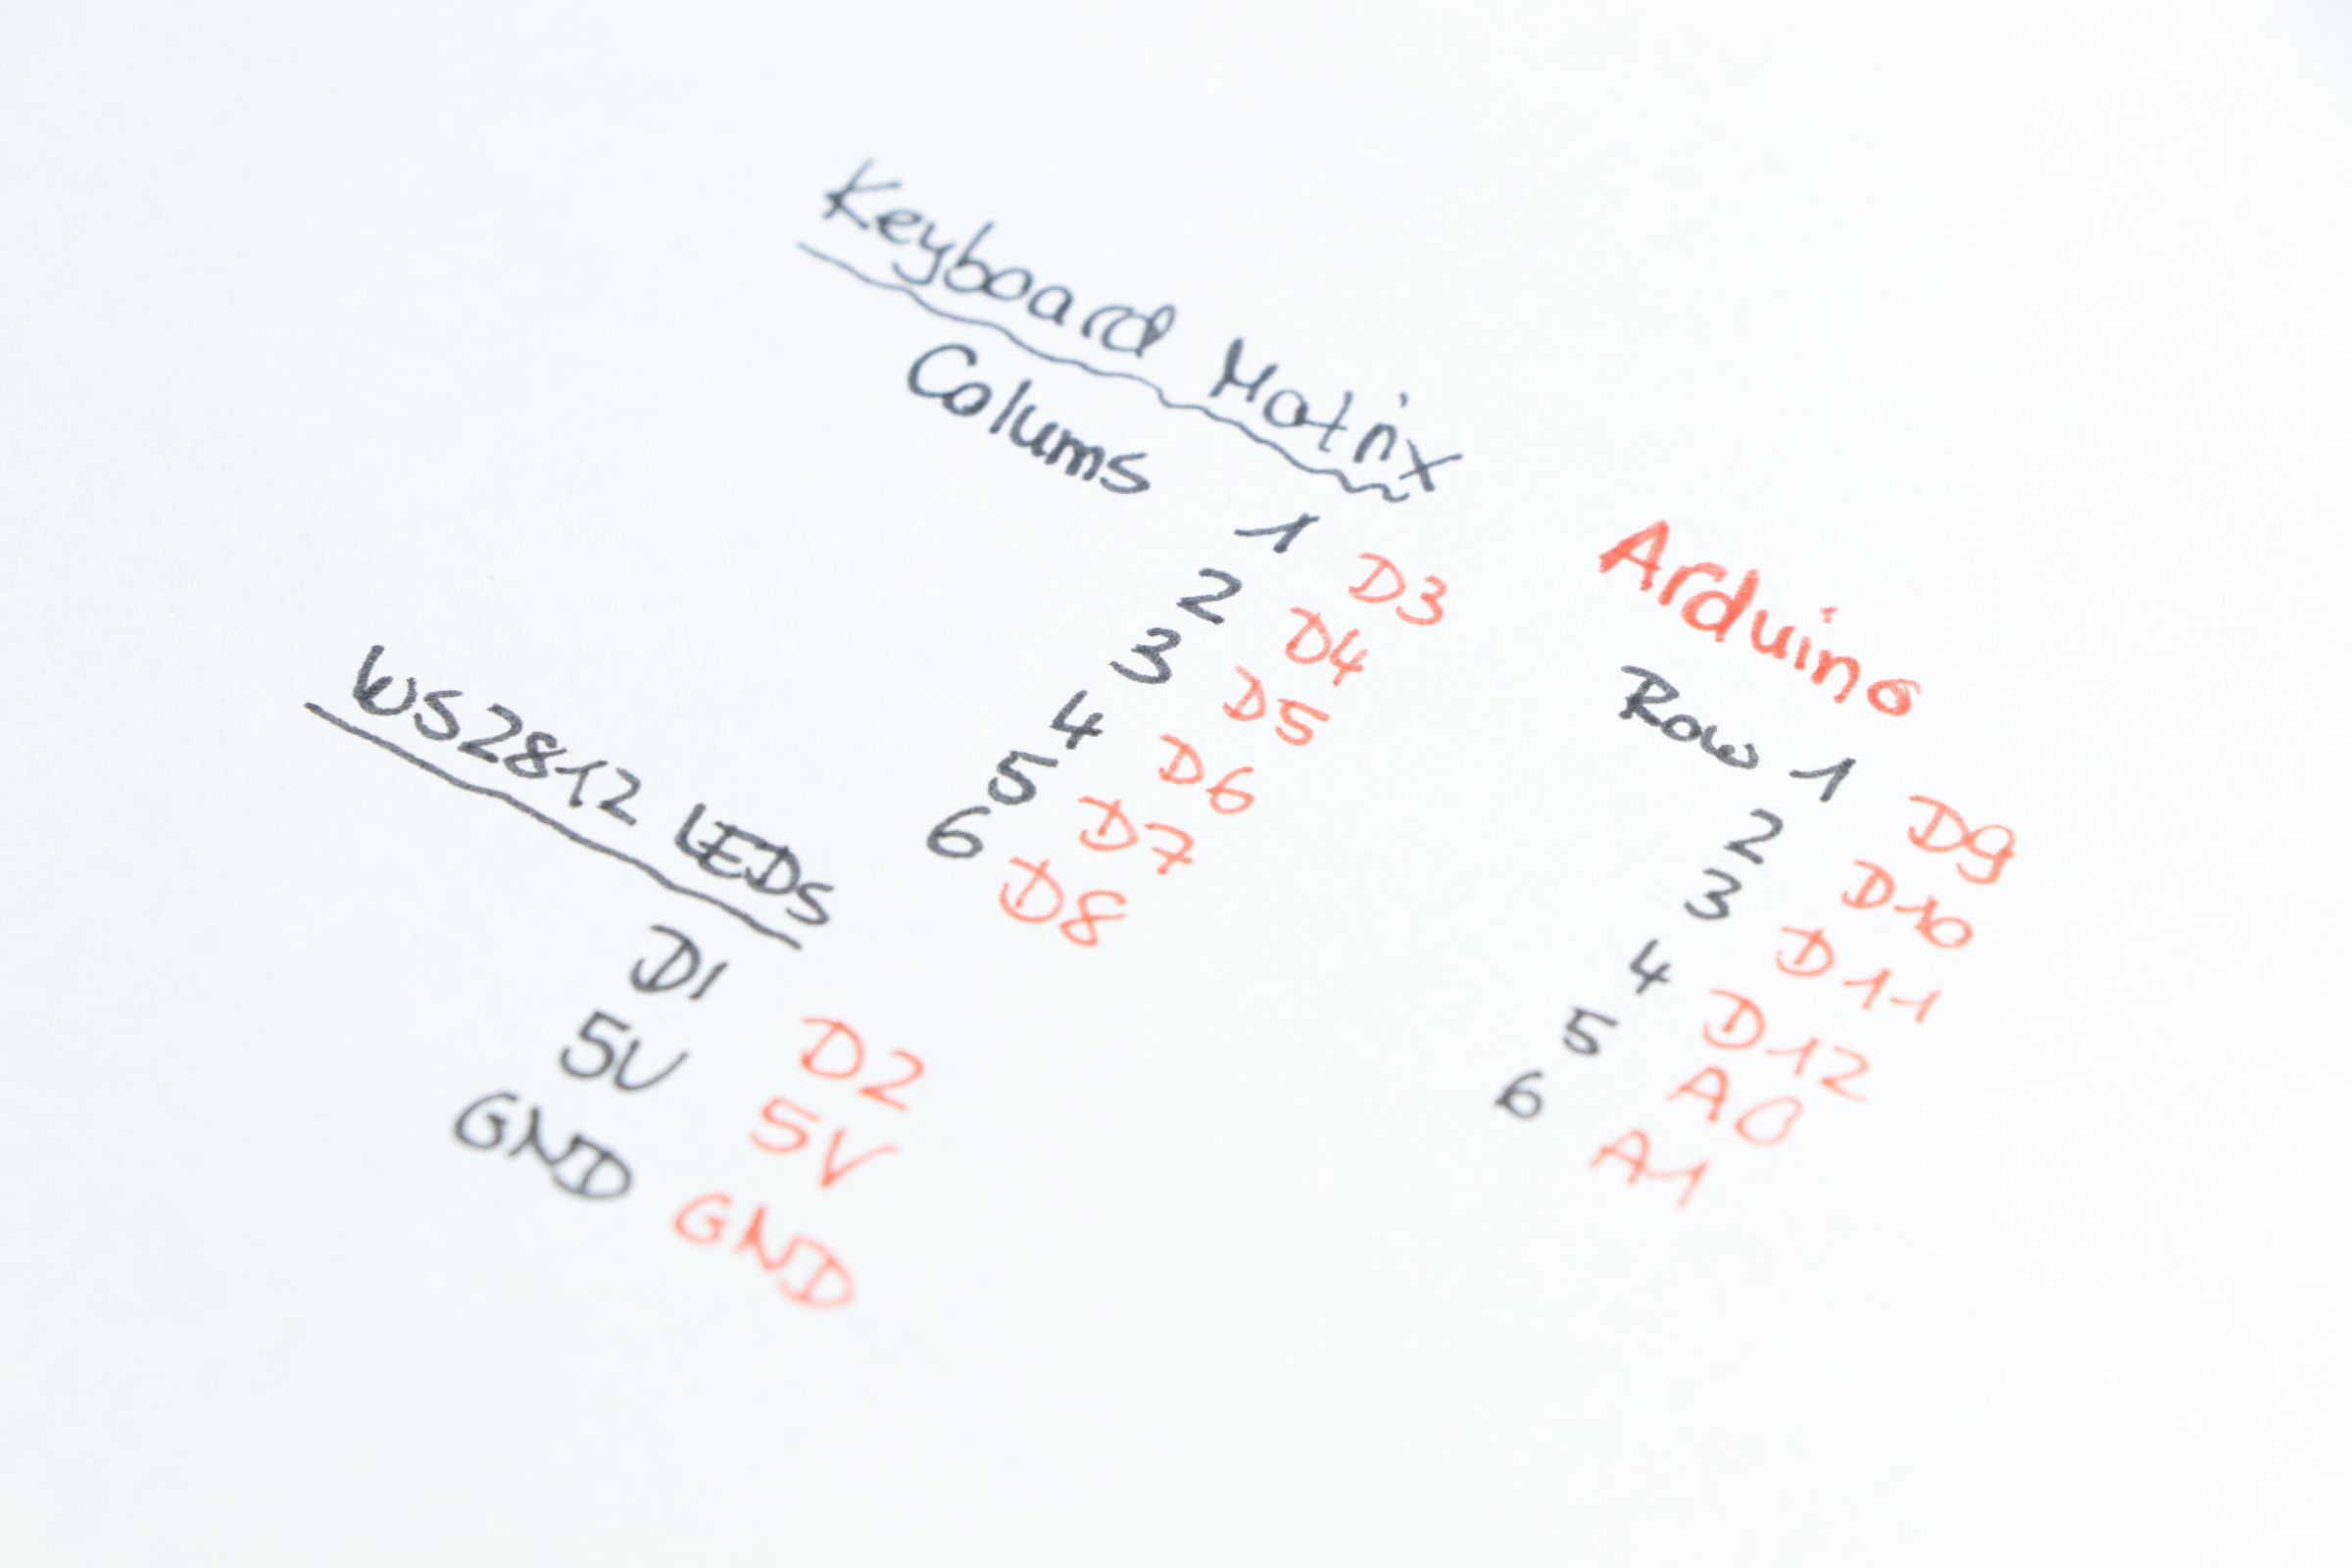 Keyboard Matrix
Arduino
Colums
1 D3
2 D4
3 D5
4 D6
5 D7
6 D8
Row 1 D9
2 D10
3 D11
4 D12
5 A0
6 A1
WS2812 LEDs
DI D2
5V 5V
GND GND